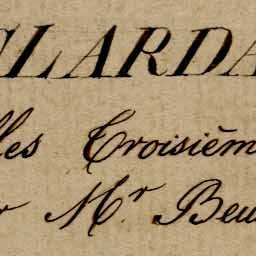 CLARDA
lles Croisièm
r Mr Beu